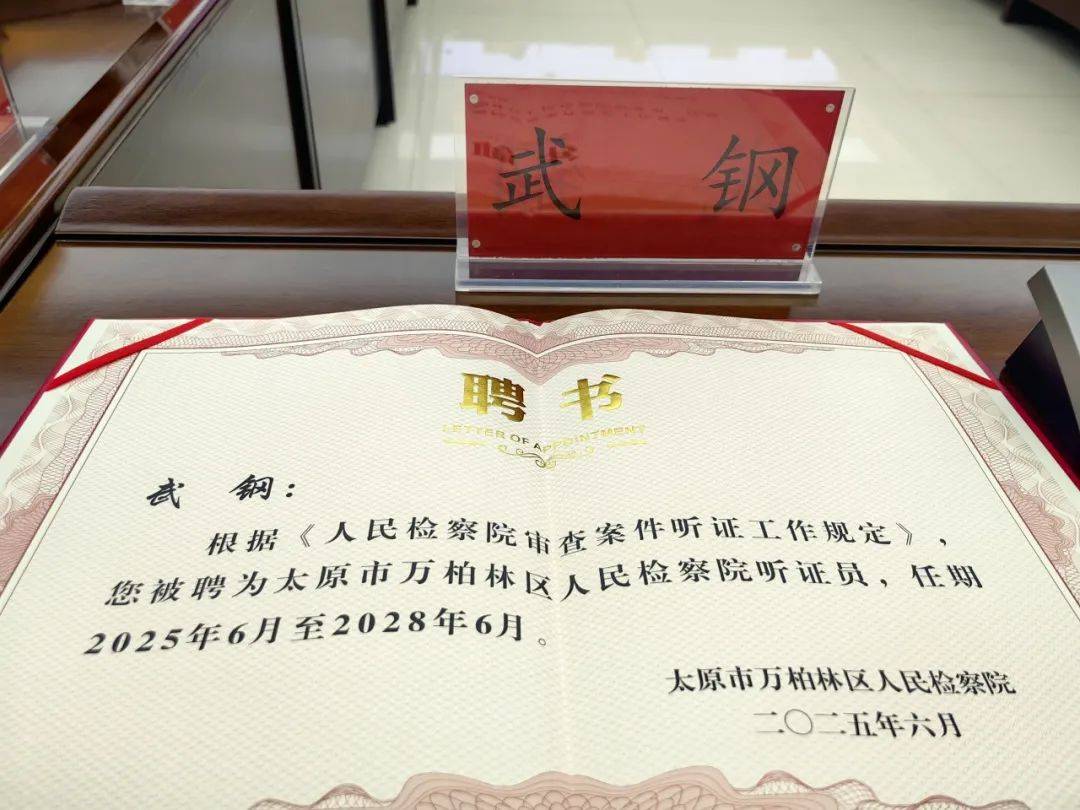 武 钢
聘书
LETTER OF APPOINTMENT
武 钢：
根据《人民检察院审查案件听证工作规定》，
您被聘为太原市万柏林区人民检察院听证员，任期
2025年6月至2028年6月。
太原市万柏林区人民检察院
二〇二五年六月